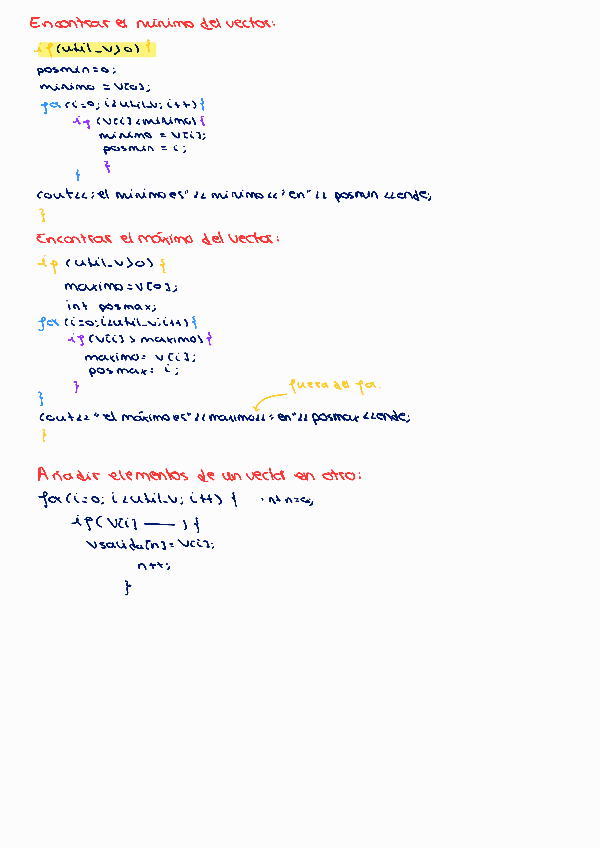 Encontrar el mínimo del vector:
if (util_v>0) {
posmin=0;
minimo = v[0];
for (i=0; i<util_v; i++) {
if (v[i]<minimo) {
minimo = v[i];
posmin = i;
}
}
cout<< "el minimo es" << minimo << "en" << posmin <<endl;
}
Encontrar el máximo del vector:
if (util_v>0) {
maximo=v[0];
int posmax;
for (i=0;i<util_v;i++) {
if (v[i] > maximo) {
maximo= v[i];
posmax= i;
}
fuera del for.
}
cout<< "el máximo es"<< maximo<< "en"<< posmax <<endl;
}
Añadir elementos de un vector en otro:
for (i=0; i<util_v; i++) { · int n=0;
if( v[i] —— ) {
vsalida[n]=v[i];
n++;
}